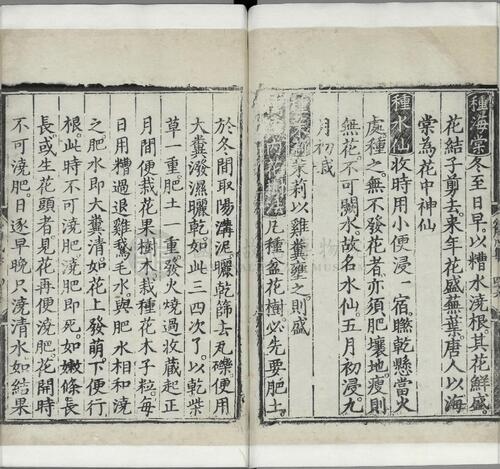 種海棠 冬至日早。以糟水澆根。其花鮮盛。
花結子剪去。来年花盛蕪葉唐人以海
棠為花中神仙
種水仙 收時用小便浸一宿。曬乾懸當火
處種之。無不發花者。亦須肥壤地。瘦則
無花。不可闕水。故名水仙。五月初浸九
月初栽
茉莉以雞糞壅之。則盛
凡種盆花樹必先要肥土。
於冬間取陽溝泥。曬乾篩去瓦礫便用
大糞潑濕曬乾。如此三四次了。以乾柴
草一重。肥土一重。發火燒過收藏起正
月間便栽花果樹木栽種花木子粒。每
日用糟過退雞鵞毛水。與肥水相和澆
之。肥水即大糞清。如花上發萌。下便行
根。此時不可澆肥澆肥即死。如嫩條長
長。或生花頭者見花再便澆肥。花開時
不可澆肥日逐早晚只澆清水如結果